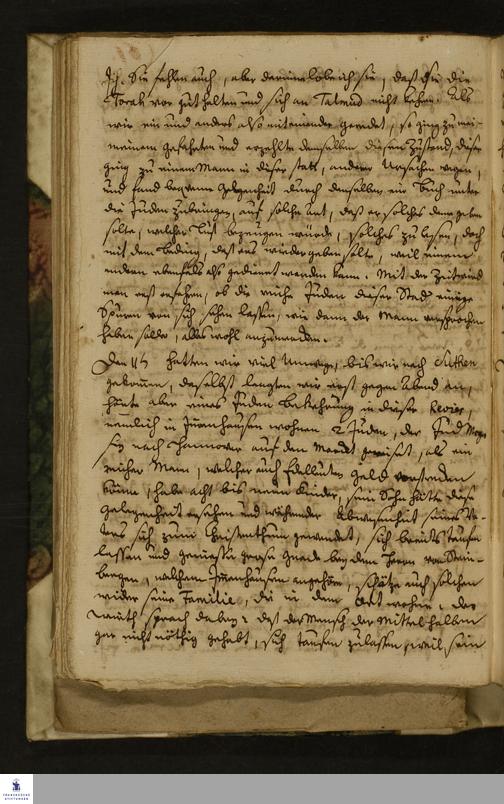 Ich: Sie fehlen auch, aber darinn lobe ich sie, daß sie die
Torah vor gut halten und sich an Talmud nicht kehren. Als
wir ein und anders also miteinander geredet, so ging zu
meinem Gefehrten und erzehlte demselben diesen Zustand, dieser
ging zu einem Mann in dieser statt, anderer Ursachen wegen,
und fand bequeme Gelegenheit durch denselben ein Buch unter
die Juden zubringen, auf solche Art, daß er solches dem geben
solte, welcher Lust bezeugen würde, solches zu lesen, doch
mit dem Beding, daß ers wiedergeben solte, weil einem
andern ebenfals als gedienet werden kann. Mit der Zeit wird
man erst ersehen, ob die Juden dieser Stadt einige
Spuren von sich sehen lassen, wie dann der Mann versprochen
haben solle, alles wohl anzuwenden.
Den hatten wir viel Umwege, bis wir nach
gekommen, daselbst langten wir erst gegen Abend an,
hörte aber eines Juden Bekehrung in dieser Revier,
nemlich in wohnen 2 Juden, der Jud
sey nach Hannover auf den Marckt gereiset, als ein
reicher Mann, welcher auch Edelleuten Geld vorstrecken
könne, habe acht bis neun Kinder, sein Sohn hätte diese
Gelegenheit ersehen und währender Abwesenheit seines
Vaters sich zum Christenthum gewendet, sich bereits tauffen
lassen und geniesse grosse Gnade bey dem Herrn von
, welchem angehöre, schütze auch solchen
wider seine Familie, die in dem Ort wohne. der
Wirth sprach dabey: daß der Mensch der Mittel halben
gar nicht nöthig gehabt, sich tauffen zulassen, weil sein